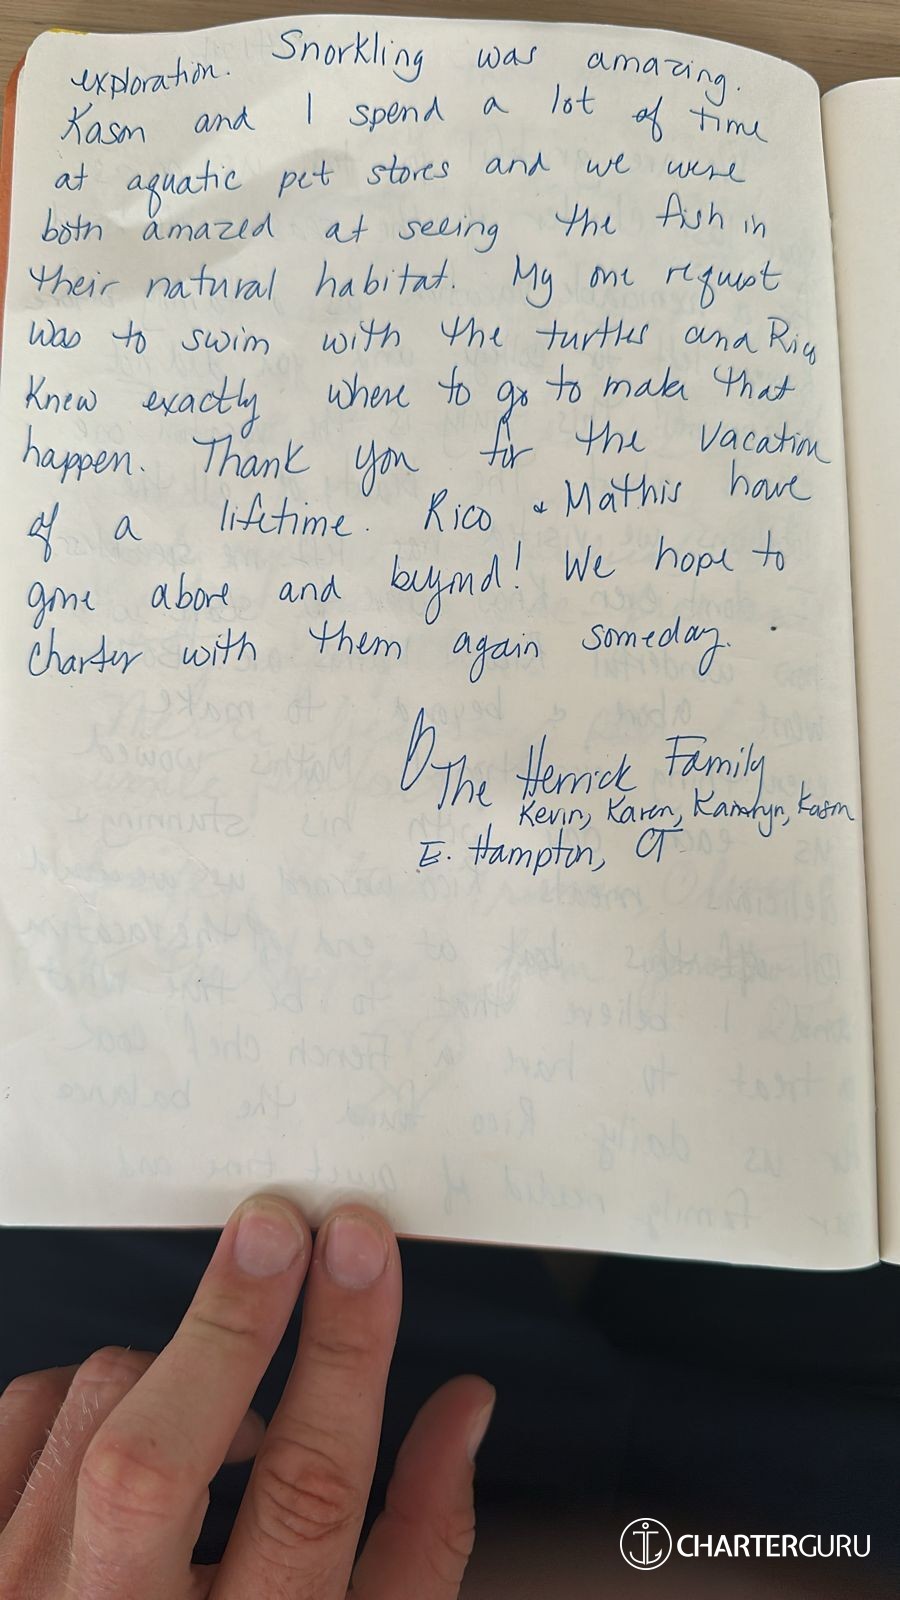 exploration. Snorkling was amazing.
Kason and I spend a lot of time
at aquatic pet stores and we were
both amazed at seeing the fish in
their natural habitat. My one request
was to swim with the turtles and Rico
knew exactly where to go to make that
happen. Thank you for the vacation
of a lifetime. Rico & Mathis have
gone above and beyond! We hope to
charter with them again someday.
The Herrick Family
Kevin, Karen, Kamryn, Kason
E. Hampton, CT
CHARTERGURU